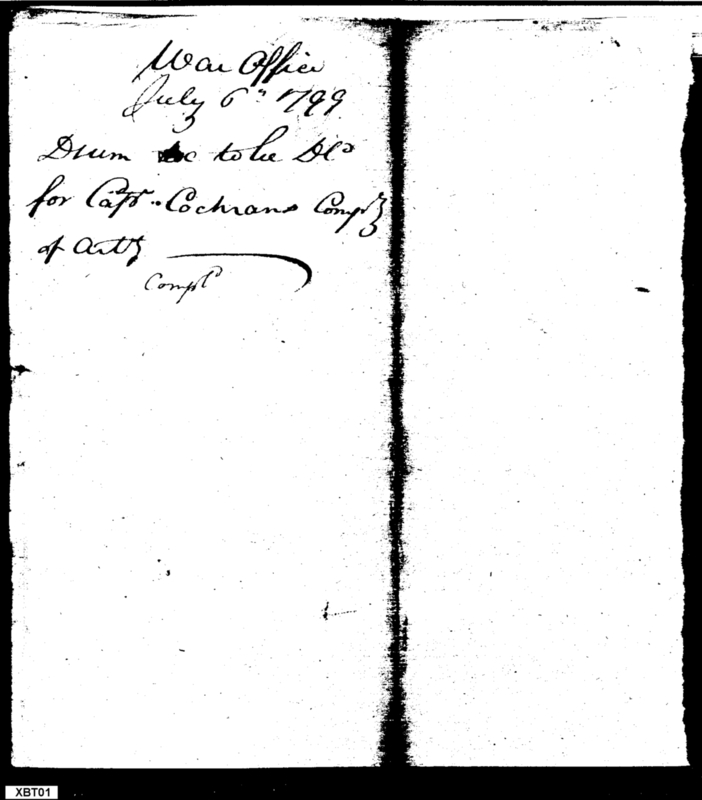 War Office
July 6th 1799
Drum &c to be Dld
for Capt. Cochrans Compy
of Arty
Compld
XBT01